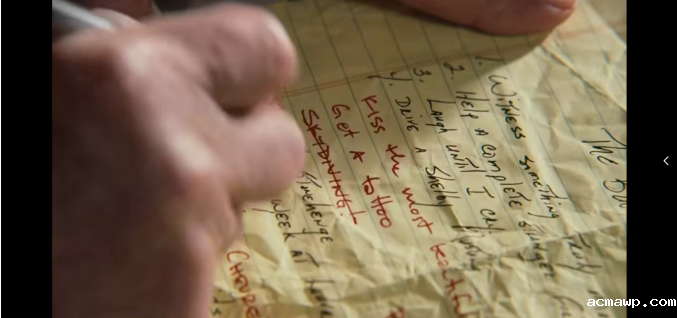 The Bu
1. Witness something truly
2. Help a complete stranger
3. Laugh until I cry
4. Drive a Shelby
Kiss the most beautiful
Get a tattoo
SKYDIVING!
WEEK AT
acmawp.com